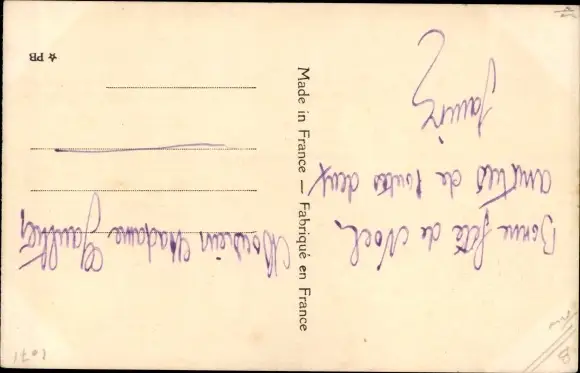 Bonne fête de Noël
amitiés de toutes deux
Monsieur Madame
Gaultier
Made in France — Fabriqué en France
☆ PB
1071